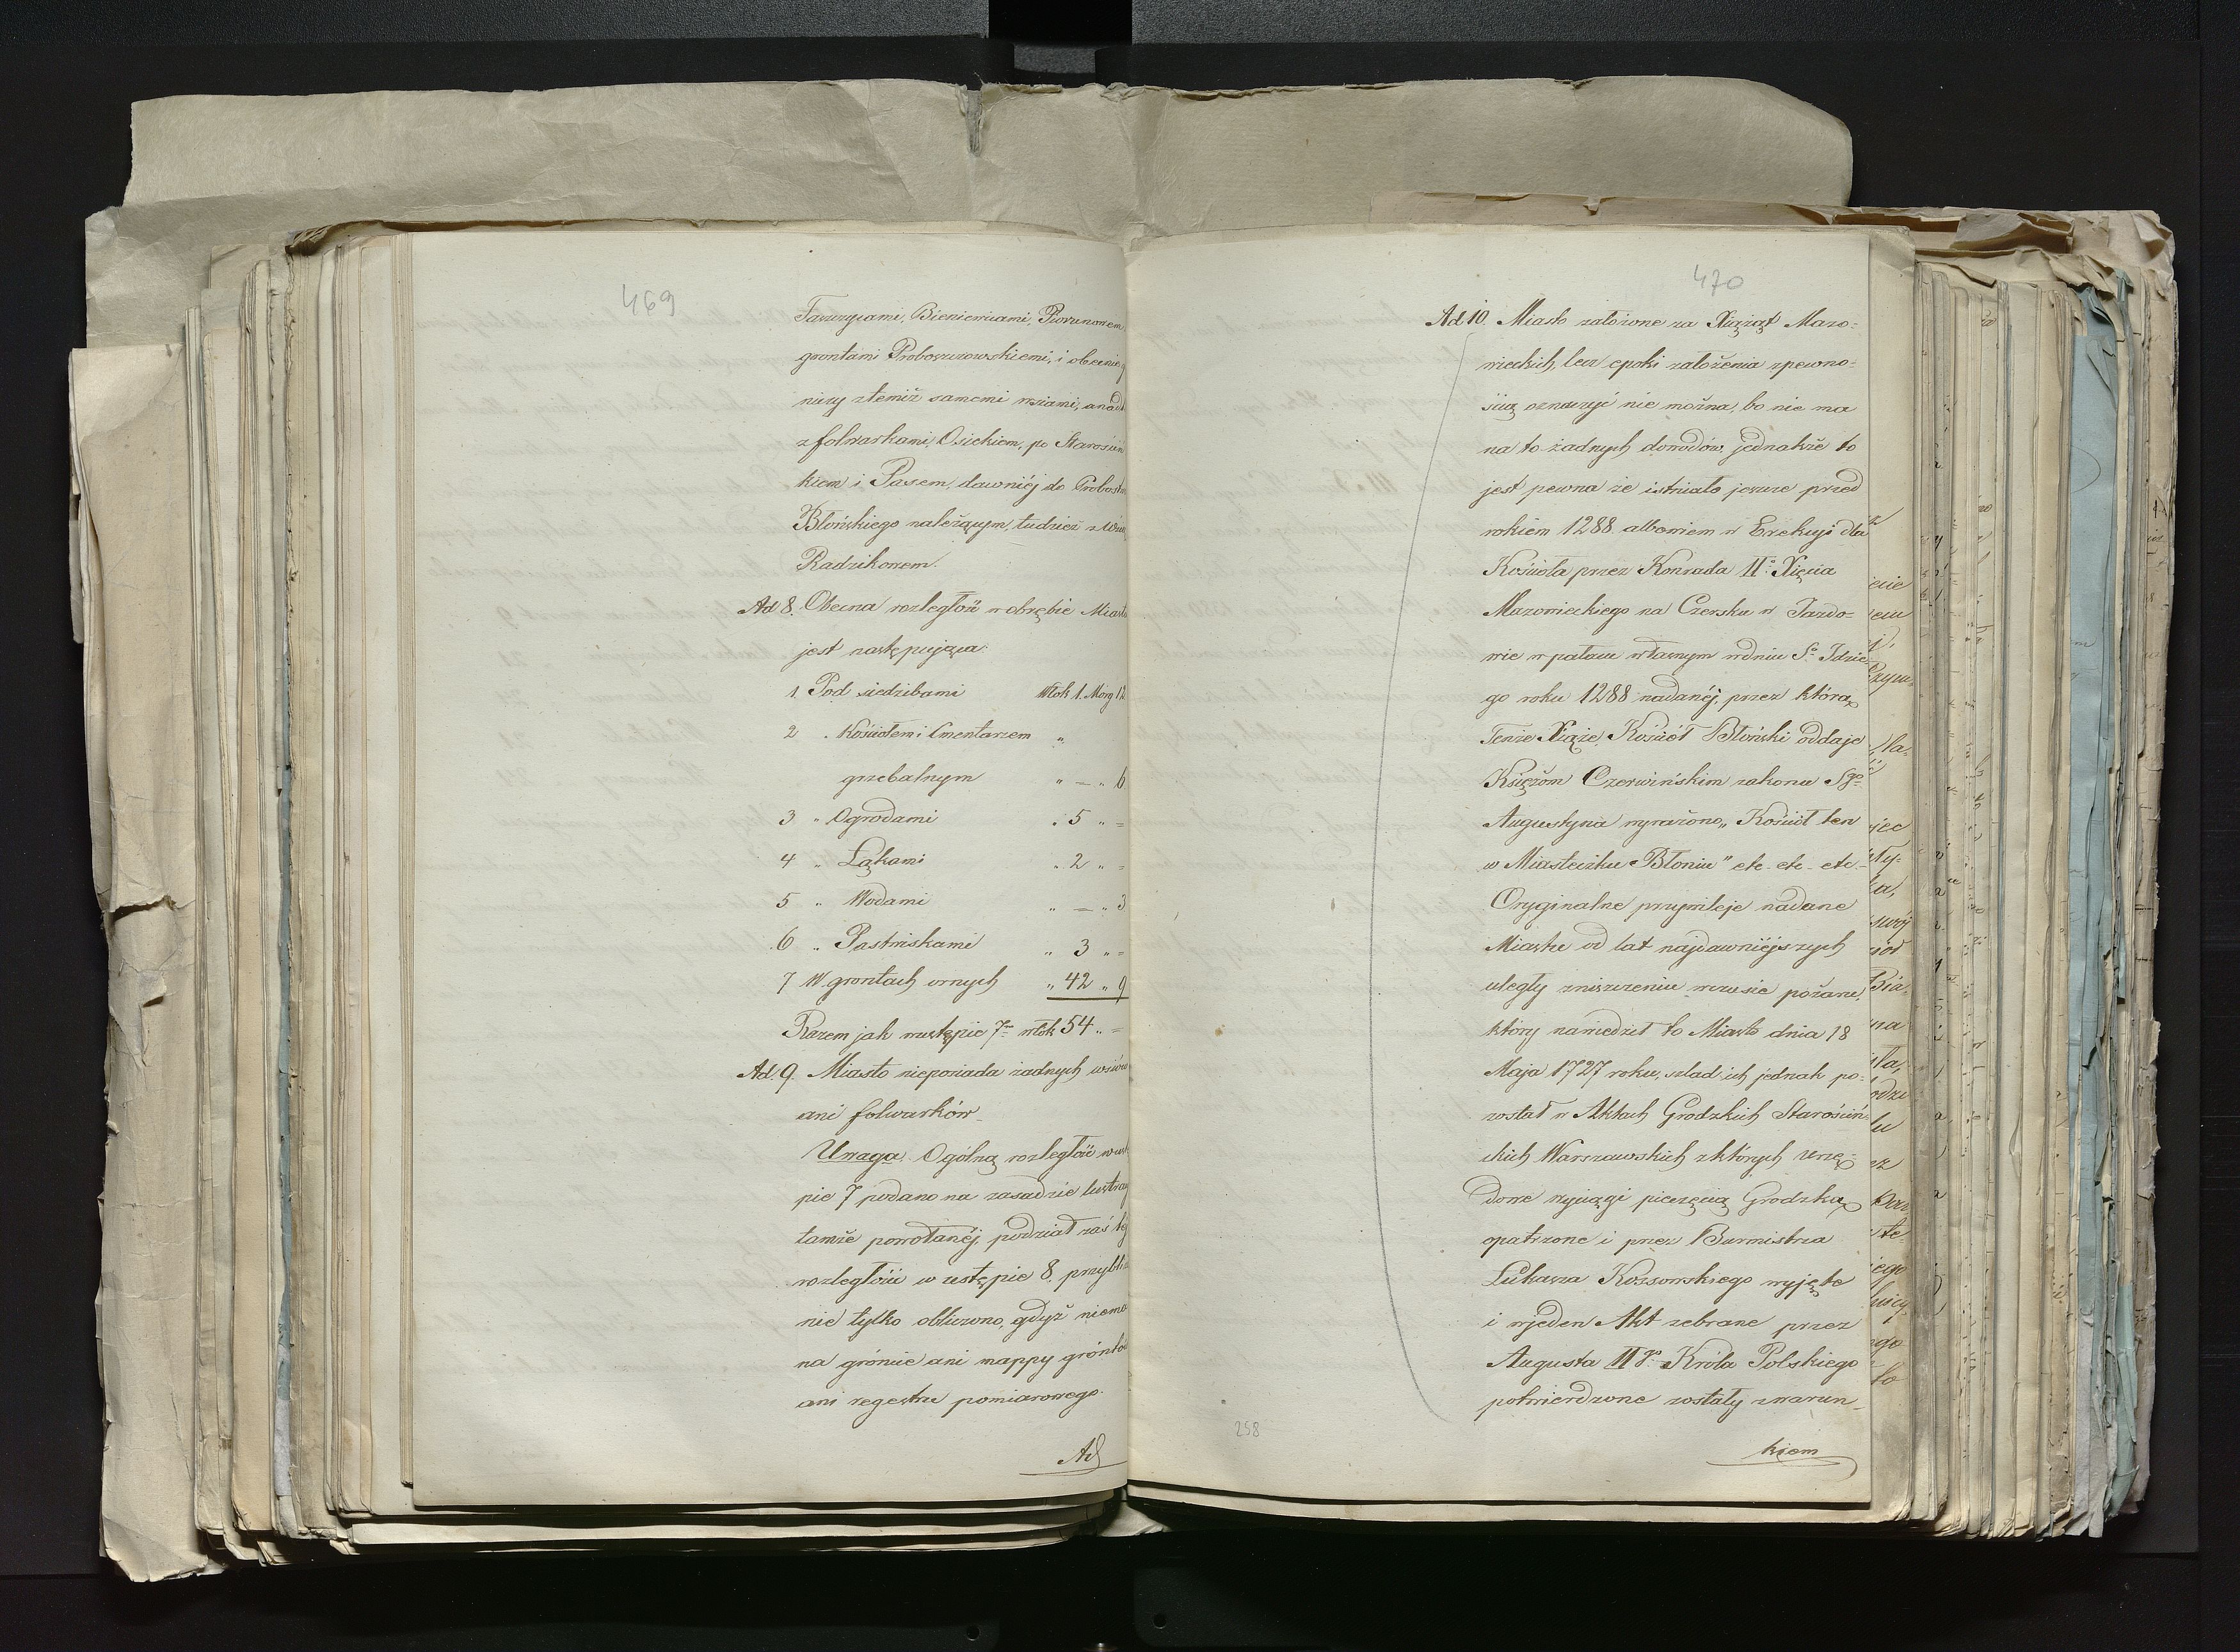 469
Faszczycami, Bieniewicami, Piorunowem
grontami Proboszczowskiemi, i obecnie g
niczy ztemiż samemi wsiami, a nadt
z folwarkami, Osiekiem, po Starościń
kiem i Passem, dawniéj do Probostw
Błońskiego należącym, tudzież z Wsią
Radzikowem.
Ad 8. Obecna rozległość w obrębie Miasta
jest następująca:
1 Pod siedzibami Włok 1. Morg 12
2 „ Kościołem i Cmentarzem „
grzebalnym „ — „ 6
3 „ Ogrodami „ 5 „ =
4 „ Łąkami „ 2 „ =
5 „ Wodami „ — „ 3
6 „ Pastwiskami „ 3 „ =
7 W grontach ornych „ 42 „ 9
Razem jak wustępie 7m włok 54 „ =
Ad. 9. Miasto nieposiada żadnych wsiów
ani folwarków
Uwaga. Ogólną rozległość w ust
pie 7 podano na zasadzie lustrac
tamże powołanéj, podział zaś téj
rozległości w ustępie 8. przybli
nie tylko obliczono, gdyż niema
na gróncie ani mappy gróntów
ani regestru pomiarowego.
Ad
470
Ad 10. Miasto założone za Xiążąt Mazo=
wieckich, lecz epoki założenia zpewno=
ścią oznaczyć nie można, bo nie ma
na to żadnych dowodów, jednakże to
jest pewna że istniało jeszcze przed
rokiem 1288. albowiem w Erekcyi dla
Kościoła przez Konrada IIo Xięcia
Mazowieckiego na Czersku w Jazdo=
wie w pałacu własnym wdniu So Idzie=
go roku 1288 nadanéj, przez którą
Tenże Xiąże, Kościół Błoński oddaje
Księżom Czerwińskim zakonu Sgo
Augustyna wyrażono „Kościół ten
w Miasteczku Błoniu" etc. etc. etc.
Oryginalne przywileje nadane
Miastu od lat najdawniéjszych
uległy zniszczeniu wczasie pożaru,
który nawiedził to Miasto dnia 18
Maja 1727 roku, szlad ich jednak po=
został w Aktach Grodzkich Starościń=
skich Warszawskich zktórych urzę=
dowe wyciągi pieczęcią Grodzką
opatrzone i przez Burmistrza
Łukasza Kossowskiego wyjęte
i wjeden Akt zebrane przez
Augusta IIgo Króla Polskiego
potwierdzone zostały zwarun=
kiem
258